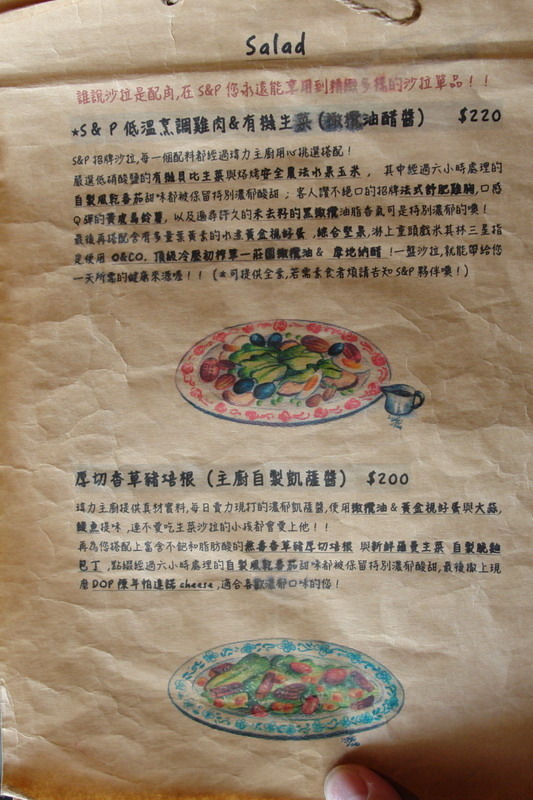 Salad
誰說沙拉是配角,在 S&P 您永遠能享用到精緻多樣的沙拉單品！！
★S & P 低溫烹調雞肉&有機生菜(橄欖油醋醬) $220
S&P 招牌沙拉,每一個配料都經過瑋力主廚用心挑選搭配！
嚴選低硝酸鹽的有機貝比生菜與焙烤安全農法水果玉米， 其中經過六小時處理的
自製風乾番茄甜味都被保留特別濃郁酸甜；客人讚不絕口的招牌法式舒肥雞胸,口感
Q彈的黃皮馬鈴薯,以及過尋許久的未去籽的黑橄欖油脂香氣可是特別濃郁的噢！
最後再搭配含有多量葉黃素的水煮黃金視好蛋,綜合堅果,淋上重頭戲米其林三星指
定使用 O&CO. 頂級冷壓初榨單一莊園橄欖油 & 摩地納醋 !一盤沙拉,就能帶給您
一天所需的健康來源喔！！(★可提供全素,若需素食者煩請告知 S&P 夥伴噢！)
厚切香草豬培根（主廚自製凱薩醬） $200
瑋力主廚提供真材實料,每日賣力現打的濃郁凱薩醬,使用橄欖油&黃金視好蛋與大蒜,
鯷魚提味,連不愛吃生菜沙拉的小孩都會愛上他！！
再為您搭配上富含不飽和脂肪酸的無毒香草豬厚切培根 與新鮮蘿蔓生菜 自製脆麵
包丁,點綴經過六小時處理的自製風乾番茄甜味都被保留特別濃郁酸甜,最後撒上現
磨DOP 陳年帕達諾 cheese,適合喜歡濃郁口味的您！